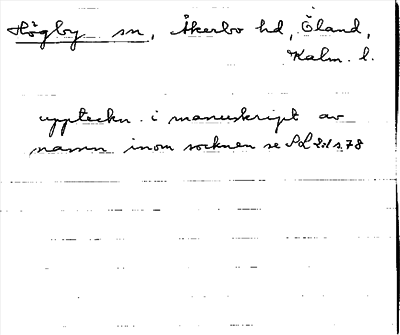 Högby sn, Åkerbo hd, Öland,
Kalm. l.
uppteckn. i manuskript av
namn inom socknen se SL 2:1 s. 78